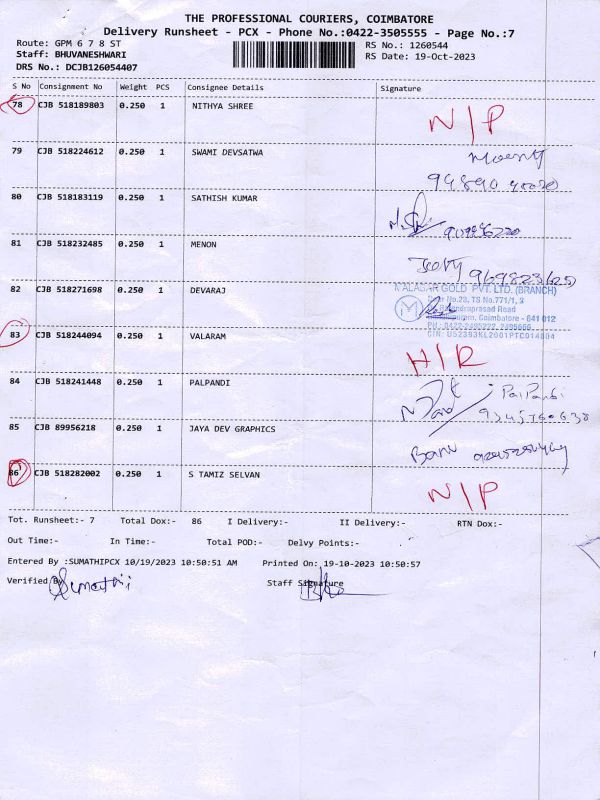 THE PROFESSIONAL COURIERS, COIMBATORE
Delivery Runsheet - PCX - Phone No.:0422-3505555 - Page No.:7
Route: GPM 6 7 8 ST
RS No.: 1260544
Staff: BHUVANESHWARI
RS Date: 19-Oct-2023
DRS No.: DCJB126054407
S No Consignment No Weight PCS Consignee Details Signature
78 CJB 518189803 0.250 1 NITHYA SHREE N/P
79 CJB 518224612 0.250 1 SWAMI DEVSATWA
80 CJB 518183119 0.250 1 SATHISH KUMAR
81 CJB 518232485 0.250 1 MENON
82 CJB 518271698 0.250 1 DEVARAJ
MALABAR GOLD PVT. LTD. (BRANCH)
Door No.23, TS No.771/1, 3
Rajendraprasad Road
Coimbatore - 641 012
PH : 0422-2495222, 2495666
83 CJB 518244094 0.250 1 VALARAM H/R
84 CJB 518241448 0.250 1 PALPANDI PalPandi
85 CJB 89956218 0.250 1 JAYA DEV GRAPHICS Banu
86 CJB 518282002 0.250 1 S TAMIZ SELVAN N/P
Tot. Runsheet:- 7 Total Dox:- 86 I Delivery:- II Delivery:- RTN Dox:-
Out Time:- In Time:- Total POD:- Delvy Points:-
Entered By :SUMATHIPCX 10/19/2023 10:50:51 AM Printed On: 19-10-2023 10:50:57
Verified By Sumathi Staff Signature